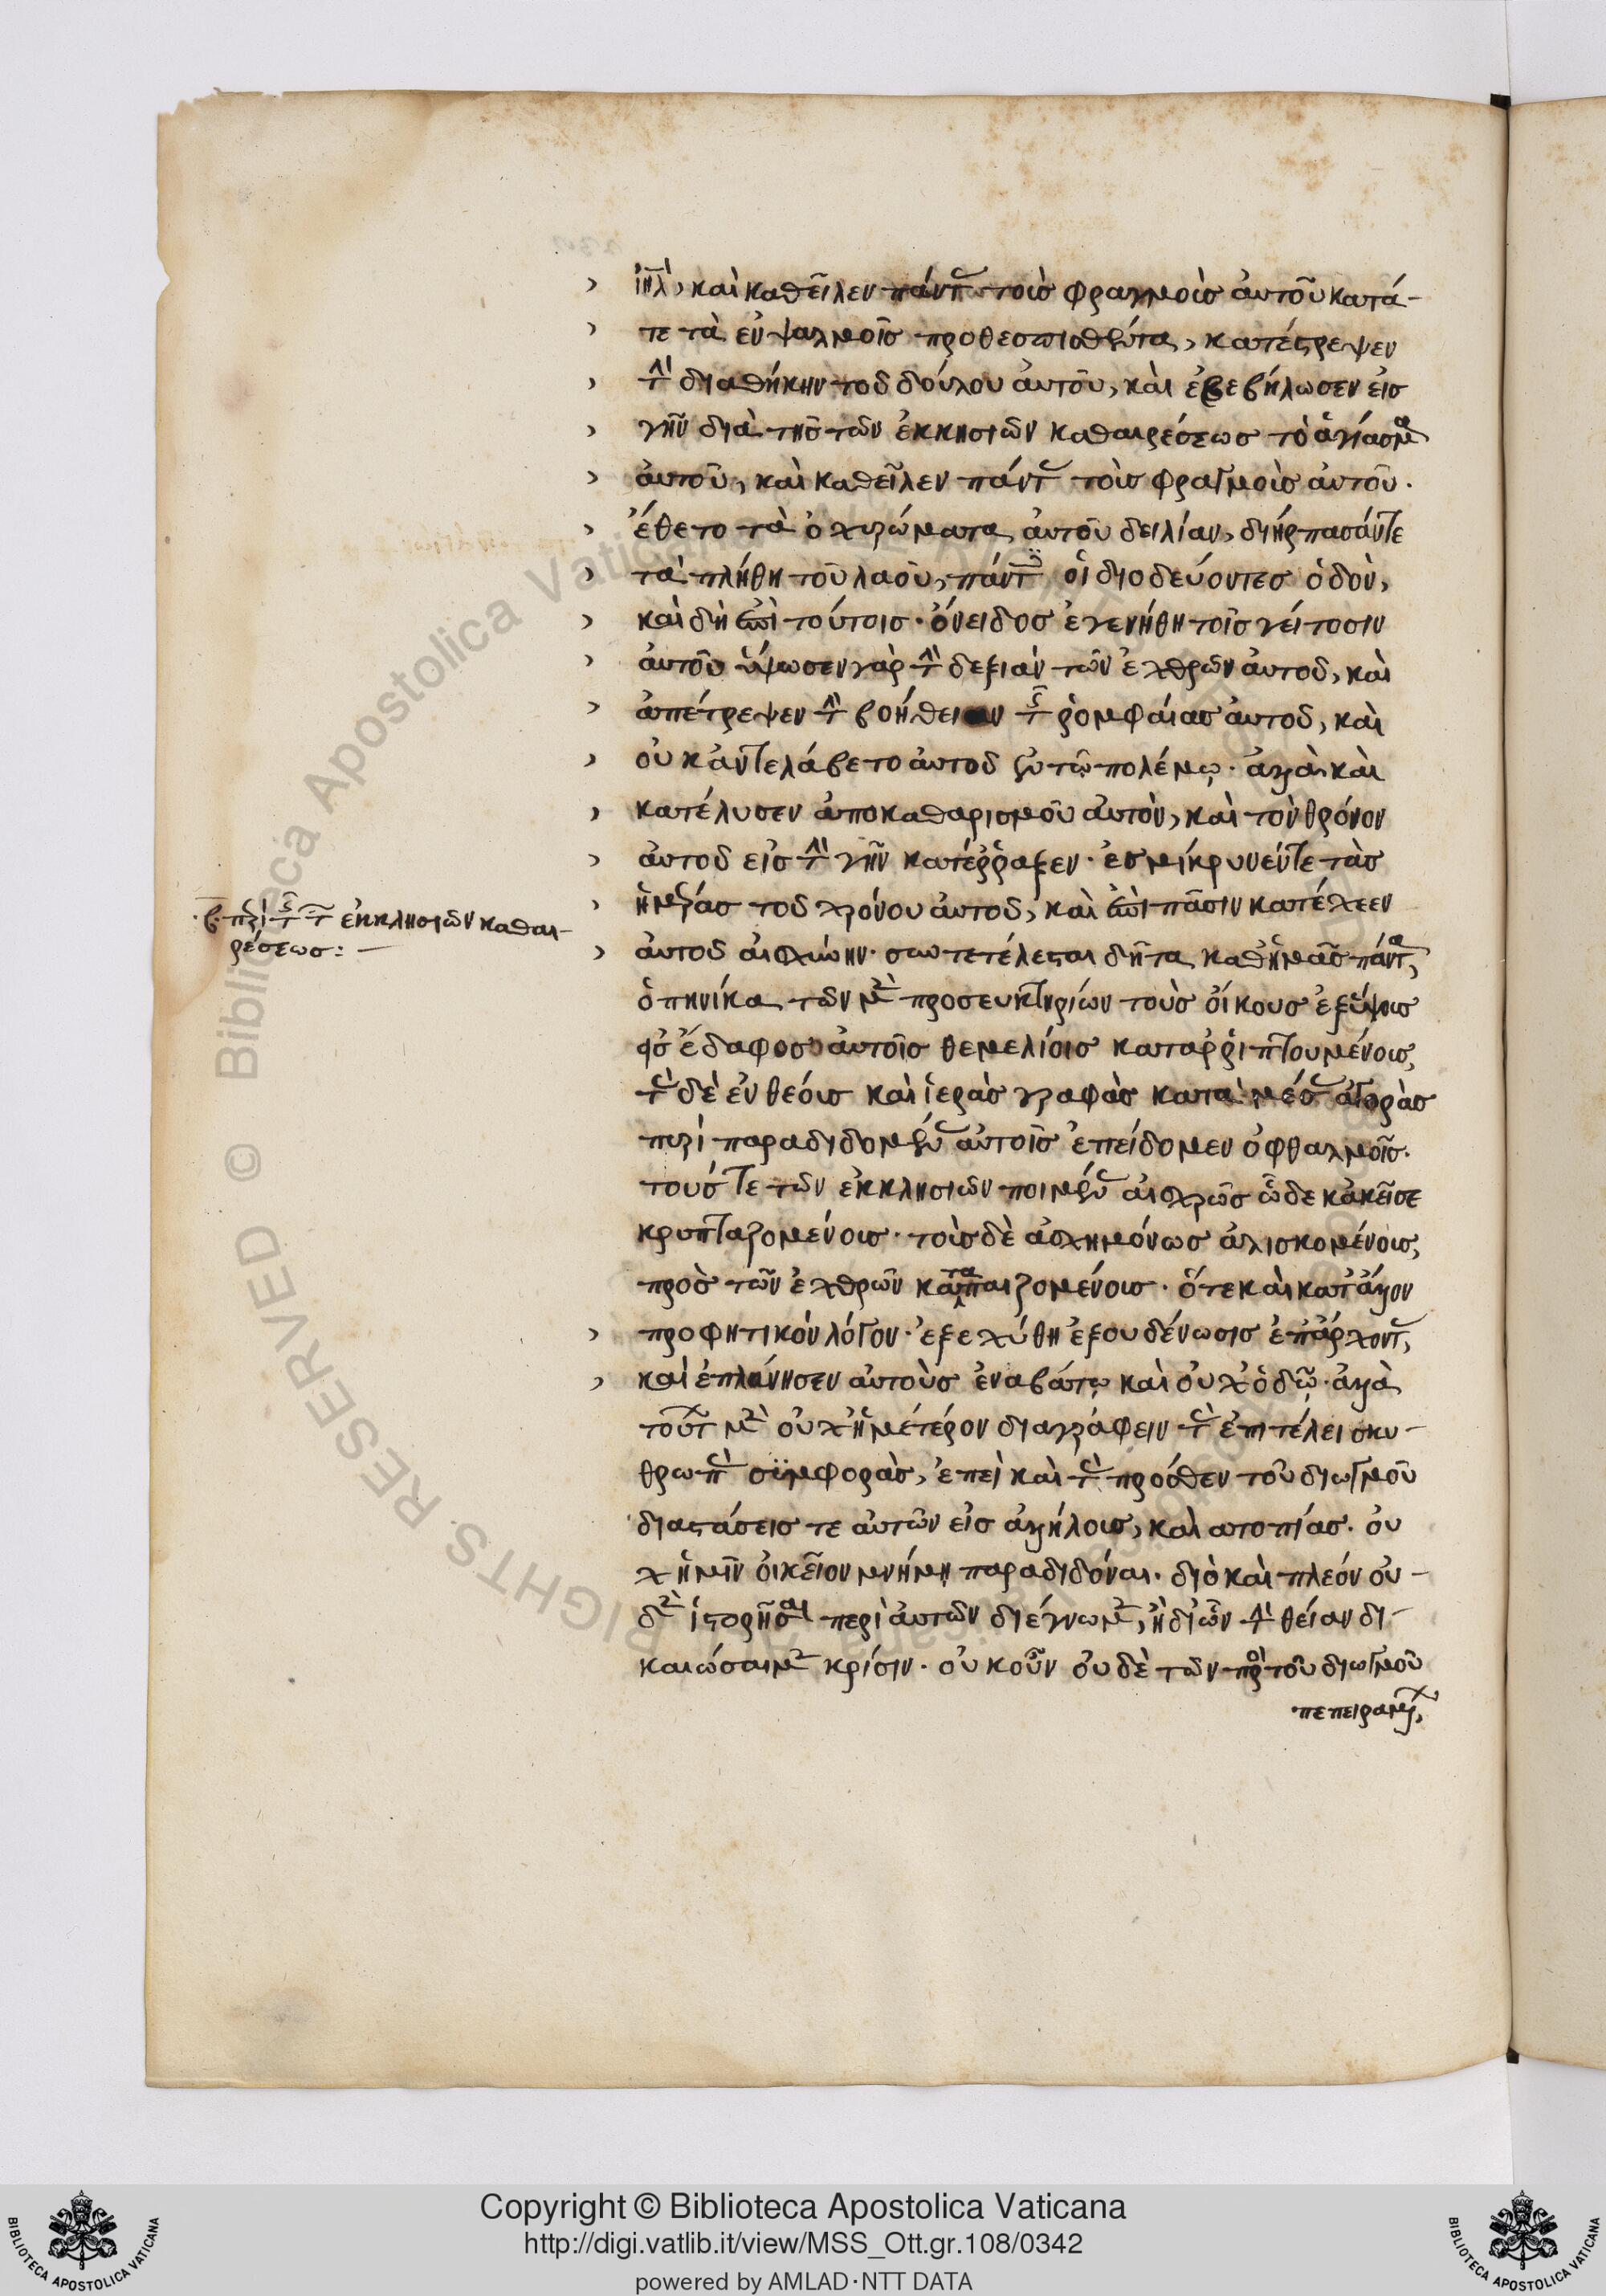 ιη̅λ̀, καὶ καθεῖλεν πάντ(ας) τοὺσ φραγμοὺσ ἀυτοῦ κατά-
τε τὰ ἐν ψαλμοῖσ προθεσπισθέντα, κατέστρεψεν
τ(ὴν) διαθήκην τοῦ δούλου ἀυτοῦ, καὶ ἐβεβήλωσεν εἰσ
γῆν διὰ τῆσ τῶν ἐκκησιῶν καθαιρέσεωσ τὸ ἁγίασμα
ἀυτοῦ, καὶ καθεῖλεν πάντ(ας) τοὺσ φραγμοὺσ ἀυτοῦ.
ἔθετο τὰ ὀχυρώματα ἀυτοῦ δειλίαν, διήρπασάν τε
τὰ πλήθη τοῦ λαοῦ, πάντ(ες) οἱ διοδεύοντεσ ὁδὸν,
καὶ δὴ ἐπὶ τούτοισ. ὄνειδοσ ἐγενήθη τοῖσ γείτοσιν
ἀυτοῦ ὕψωσεν γὰρ τ(ὴν) δεξιὰν τῶν ἐχθρῶν ἀυτοῦ, καὶ
ἀπέτρεψεν τ(ὴν) βοήθειαν τ(ῆς) ῥομφαίασ ἀυτοῦ, καὶ
οὐκ ἀντελάβετο ἀυτοῦ ἐν τῷ πολέμῳ. ἀλλὰ καὶ
κατέλυσεν ἀποκαθαρισμοῦ ἀυτὸν, καὶ τὸν θρόνον
ἀυτοῦ εἰσ τ(ὴν) γῆν κατέῤῥαξεν. ἐσμίκρυνέν τε τὰσ
ἡμέρασ τοῦ χρόνου ἀυτοῦ, καὶ ἐπὶ πᾶσιν κατέχεεν
·β· περὶ τ(ῆς) τ(ῶν) ἐκκλησιῶν καθαι-
ρέσεωσ:-
ἀυτοῦ αἰσχύνην. συντετέλεσται δῆτα καθ' ἡμᾶσ πάντα,
ὁπηνίκα τῶν μ(ὲν) προσευκτηρίων τοὺσ οἴκουσ ἐξ ὕψουσ
εἰσ ἔδαφοσ ἀυτοῖσ θεμελίοισ καταῤῥιπτουμένουσ,
τ(ὰς) δὲ ἐνθέουσ καὶ ἱερὰσ γραφὰσ κατὰ μέσ(ας) ἀγορὰσ
πυρὶ παραδιδομέν(ας) ἀυτοῖσ ἐπείδομεν ὀφθαλμοῖσ.
τούσ τε τῶν ἐκκλησιῶν ποιμέν(ας) αἰσχρῶσ ὧδε κἀκεῖσε
κρυπταζομένουσ. τοὺσ δὲ ἀσχημόνωσ ἁλισκομένουσ,
πρὸσ τῶν ἐχθρῶν καταπαιζομένουσ. ὅτε καὶ κατ' ἄλλον
προφητικὸν λόγον. ἐξεχύθη ἐξουδένωσισ ἐπ' ἄρχοντ(ας),
καὶ ἐπλάνησεν ἀυτοὺσ ἐν ἀβάτῳ καὶ οὐχ ὁδῷ. ἀλλὰ
τούτ(ων) μ(ὲν) οὐχ ἡμέτερον διαγράφειν τ(ὰς) ἐπὶ τέλει σκυ-
θρωπ(ὰς) συμφορὰσ, ἐπεὶ καὶ τ(ὰς) πρόσθεν τοῦ διωγμοῦ
διαστάσεισ τε ἀυτῶν εἰσ ἀλλήλουσ, καὶ ἀτοπίασ. οὐ
χ ἡμῖν οἰκεῖον μνήμῃ παραδιδόναι. διὸ καὶ πλέον οὐ-
δ(ὲν) ἱστορῆσαι περὶ ἀυτῶν διέγνωμ(εν), ἢ δι' ὧν τ(ὴν) θείαν δι-
καιώσαιμ(εν) κρίσιν. οὐκοῦν οὐδὲ τῶν πρὸ τοῦ διωγμοῦ
πεπειραμ(ένων),
Copyright © Biblioteca Apostolica Vaticana
http://digi.vatlib.it/view/MSS_Ott.gr.108/0342
powered by AMLAD·NTT DATA